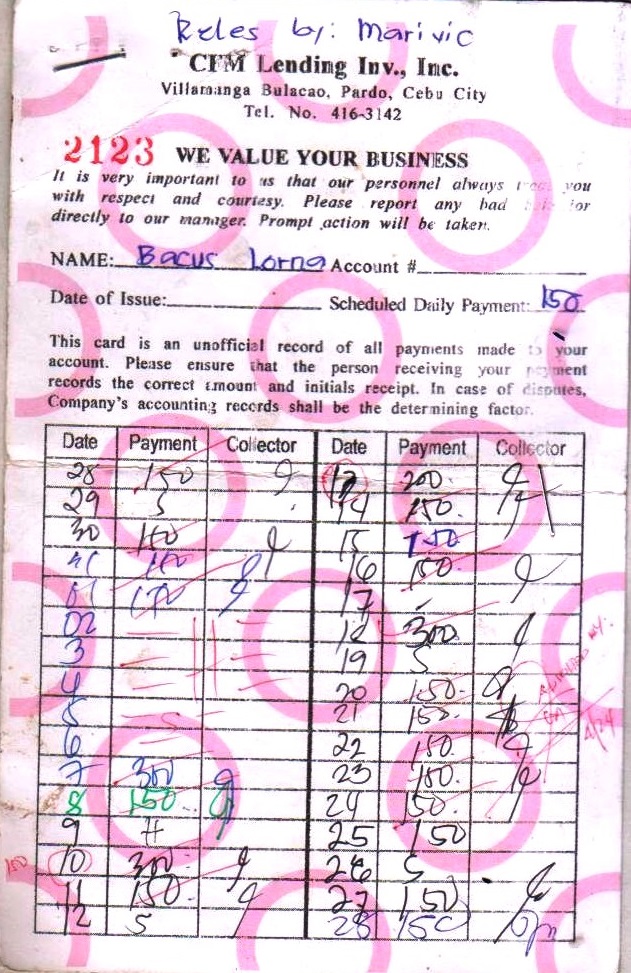 Reles by: Marivic
CFM Lending Inv., Inc.
Villamanga Bulacao, Pardo, Cebu City
Tel. No. 416-3142
2123 WE VALUE YOUR BUSINESS
It is very important to us that our personnel always you
with respect and courtesy. Please report any bad
directly to our manager. Prompt action will be taken.
NAME: Bacus Lorna Account #
Date of Issue: Scheduled Daily Payment: 150
This card is an unofficial record of all payments made to your
account. Please ensure that the person receiving your payment
records the correct amount and initials receipt. In case of disputes,
Company's accounting records shall be the determining factor.
Date Payment Collector Date Payment Collector
28 150 200
29 S 14 150
30 15 150
16 150
17
02 18 300
3 19 S
4 20 150
5 21 150
6 22 150
7 300 23 150
8 150 24 150
9 H 25 150
150 10 300 26 S
11 150 27 150
12 S 28 150
4/24